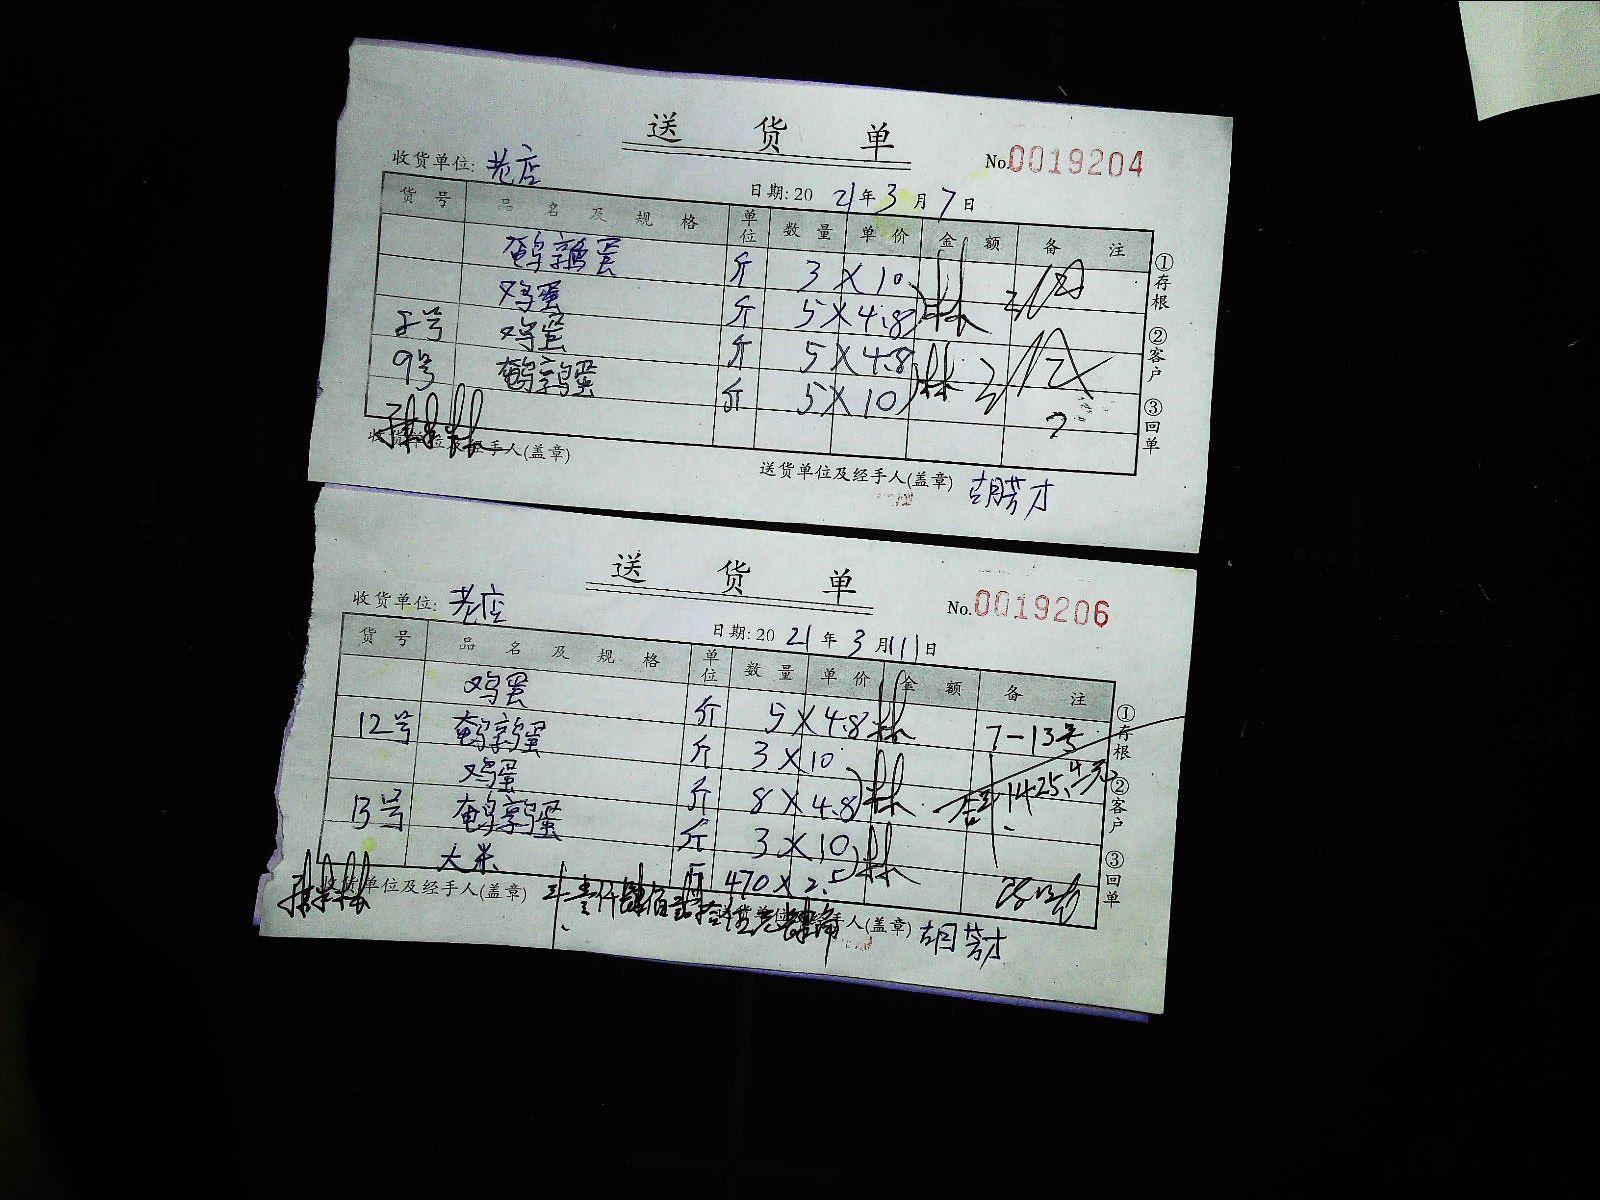 送 货 单
No.0019204
收货单位: 老店
日期: 2021年3月7日
货 号 品 名 及 规 格 单位 数 量 单 价 金 额 备 注
鹌鹑蛋 斤 3 × 10
鸡蛋 斤 5 × 4.8
8号 鸡蛋 斤 5 × 4.8
9号 鹌鹑蛋 斤 5 × 10
①存根 ②客户 ③回单
收货单位及经手人(盖章)
送货单位及经手人(盖章) 胡芳才
送 货 单
No.0019206
收货单位: 老店
日期: 2021年3月11日
货 号 品 名 及 规 格 单位 数 量 单 价 金 额 备 注
鸡蛋 斤 5 × 4.8 7-13号
12号 鹌鹑蛋 斤 3 × 10
鸡蛋 斤 8 × 4.8 1425.4元
13号 鹌鹑蛋 斤 3 × 10
大米 斤 470 × 2.5
①存根 ②客户 ③回单
收货单位及经手人(盖章)
壹仟肆佰贰拾伍元肆角
送货单位及经手人(盖章) 胡芳才